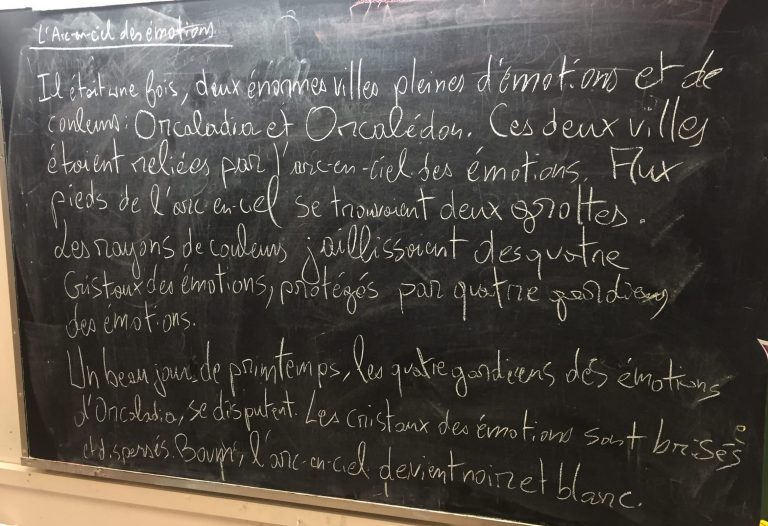 L'Arc-en-ciel des émotions
Il était une fois, deux énormes villes pleines d'émotions et de
couleurs: Orcaladia et Orcalédon. Ces deux villes
étaient reliées par l'arc-en-ciel des émotions. Aux
pieds de l'arc en-ciel se trouvaient deux grottes.
Les rayons de couleurs jaillissaient des quatre
Cristaux des émotions, protégés par quatre gardiens
des emotions.
Un beau jour de printemps, les quatre gardiens des émotions
d'Orcaladia, se disputent. Les cristaux des émotions sont brisés
et dispersés. Boum, l'arc-en-ciel devient noir et blanc.